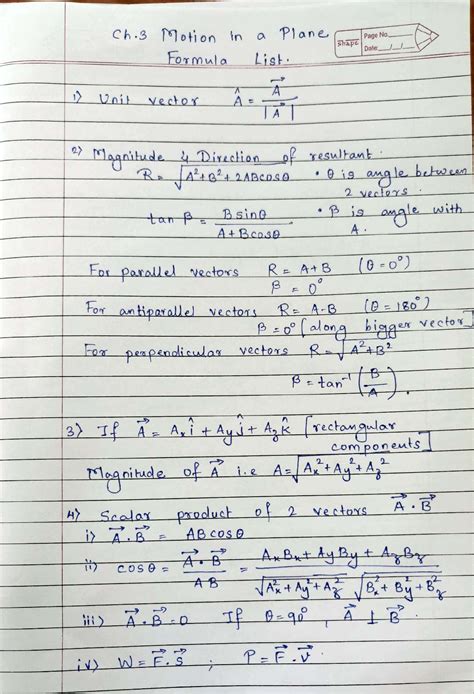 Ch.3 Motion in a Plane
Formula List.
Shape Page No.
Date: / /
1) Unit vector Â = A⃗ / |A⃗|
2) Magnitude & Direction of resultant.
R = √(A² + B² + 2ABcosθ) • θ is angle between 2 vectors.
tan β = Bsinθ / (A + Bcosθ) • β is angle with A.
For parallel vectors R = A + B (θ = 0°)
β = 0°
For antiparallel vectors R = A - B (θ = 180°)
β = 0° [along bigger vector]
For perpendicular vectors R = √(A² + B²)
β = tan⁻¹ (B/A).
3) If A⃗ = Aₓî + Ayĵ + A𝓏k̂ [rectangular components]
Magnitude of A⃗ i.e A = √(Aₓ² + Ay² + A𝓏²)
4) Scalar product of 2 vectors A⃗ . B⃗
i) A⃗ . B⃗ = ABcosθ
ii) cosθ = A⃗ . B⃗ / AB = (AₓBₓ + AyBy + A𝓏B𝓏) / (√(Aₓ² + Ay² + A𝓏²) √(Bₓ² + By² + B𝓏²))
iii) A⃗ . B⃗ = 0 If θ = 90°, A⃗ ⊥ B⃗
iv) W = F⃗ . s⃗ ; P = F⃗ . v⃗